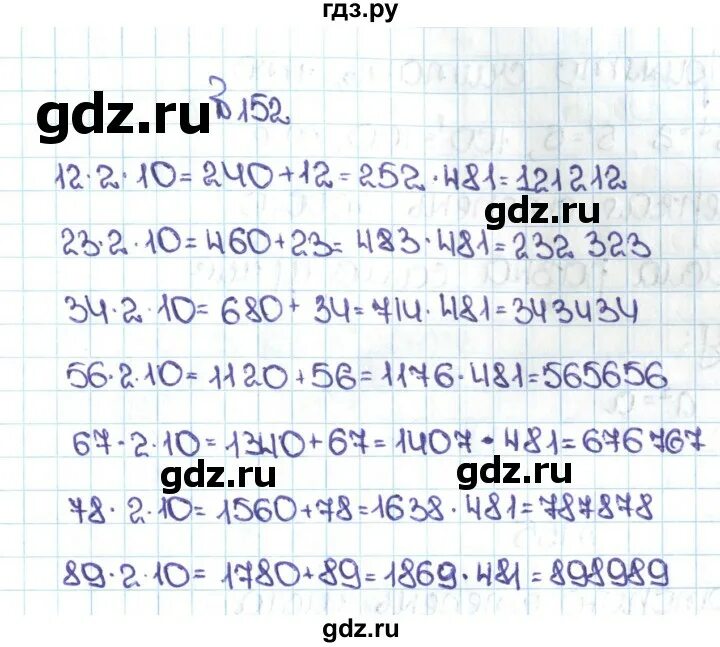 гдз.ру
gdz.ru
№152
12·2·10=240+12=252·481=121212
gdz.ru
23·2·10=460+23=483·481=232323
34·2·10=680+34=714·481=343434
56·2·10=1120+56=1176·481=565656
67·2·10=1340+67=1407·481=676767
gdz.ru
gdz.ru
78·2·10=1560+78=1638·481=787878
89·2·10=1780+89=1869·481=898989
gdz.ru